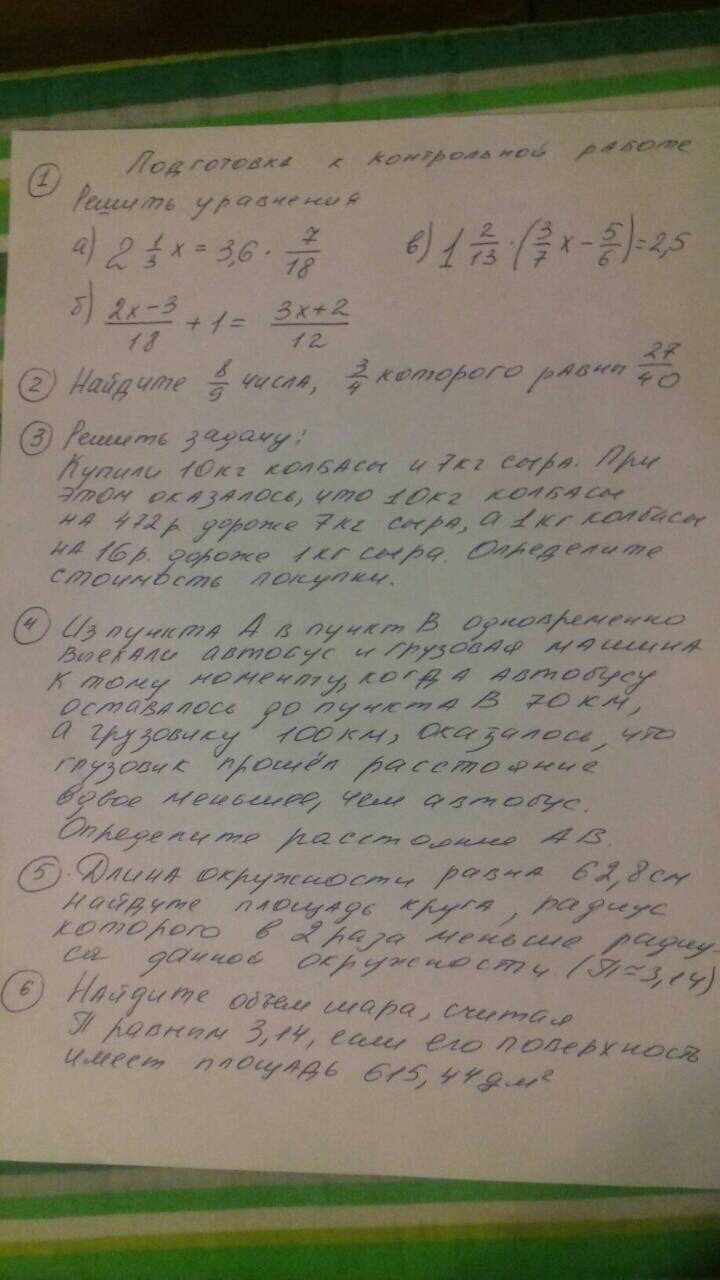 Подготовка к контрольной работе
① Решить уравнения
а) 2 1/3 x = 3,6 · 7/18 в) 1 2/13 · (3/7 x − 5/6) = 2,5
б) (2x−3)/18 + 1 = (3x+2)/12
② Найдите 8/9 числа, 3/4 которого равны 27/40
③ Решить задачу:
Купили 10кг колбасы и 7кг сыра. При
этом оказалось, что 10кг колбасы
на 472р дороже 7кг сыра, а 1кг колбасы
на 16р. дороже 1кг сыра. Определите
стоимость покупки.
④ Из пункта А в пункт В одновременно
выехали автобус и грузовая машина
К тому моменту, когда автобусу
оставалось до пункта В 70км,
а грузовику 100км, оказалось, что
грузовик прошёл расстояние
вдвое меньшее, чем автобус.
Определите расстояние АВ.
⑤. Длина окружности равна 62,8см
Найдите площадь круга, радиус
которого в 2 раза меньше радиу-
са данной окружности (П≈3,14)
⑥ Найдите объем шара, считая
П равным 3,14, если его поверхность
имеет площадь 615,44дм²